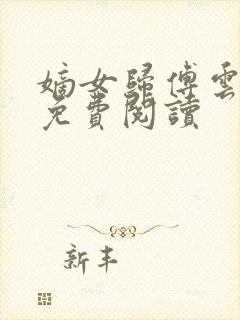 嫡女歸傅雲
免費閱讀
新丰